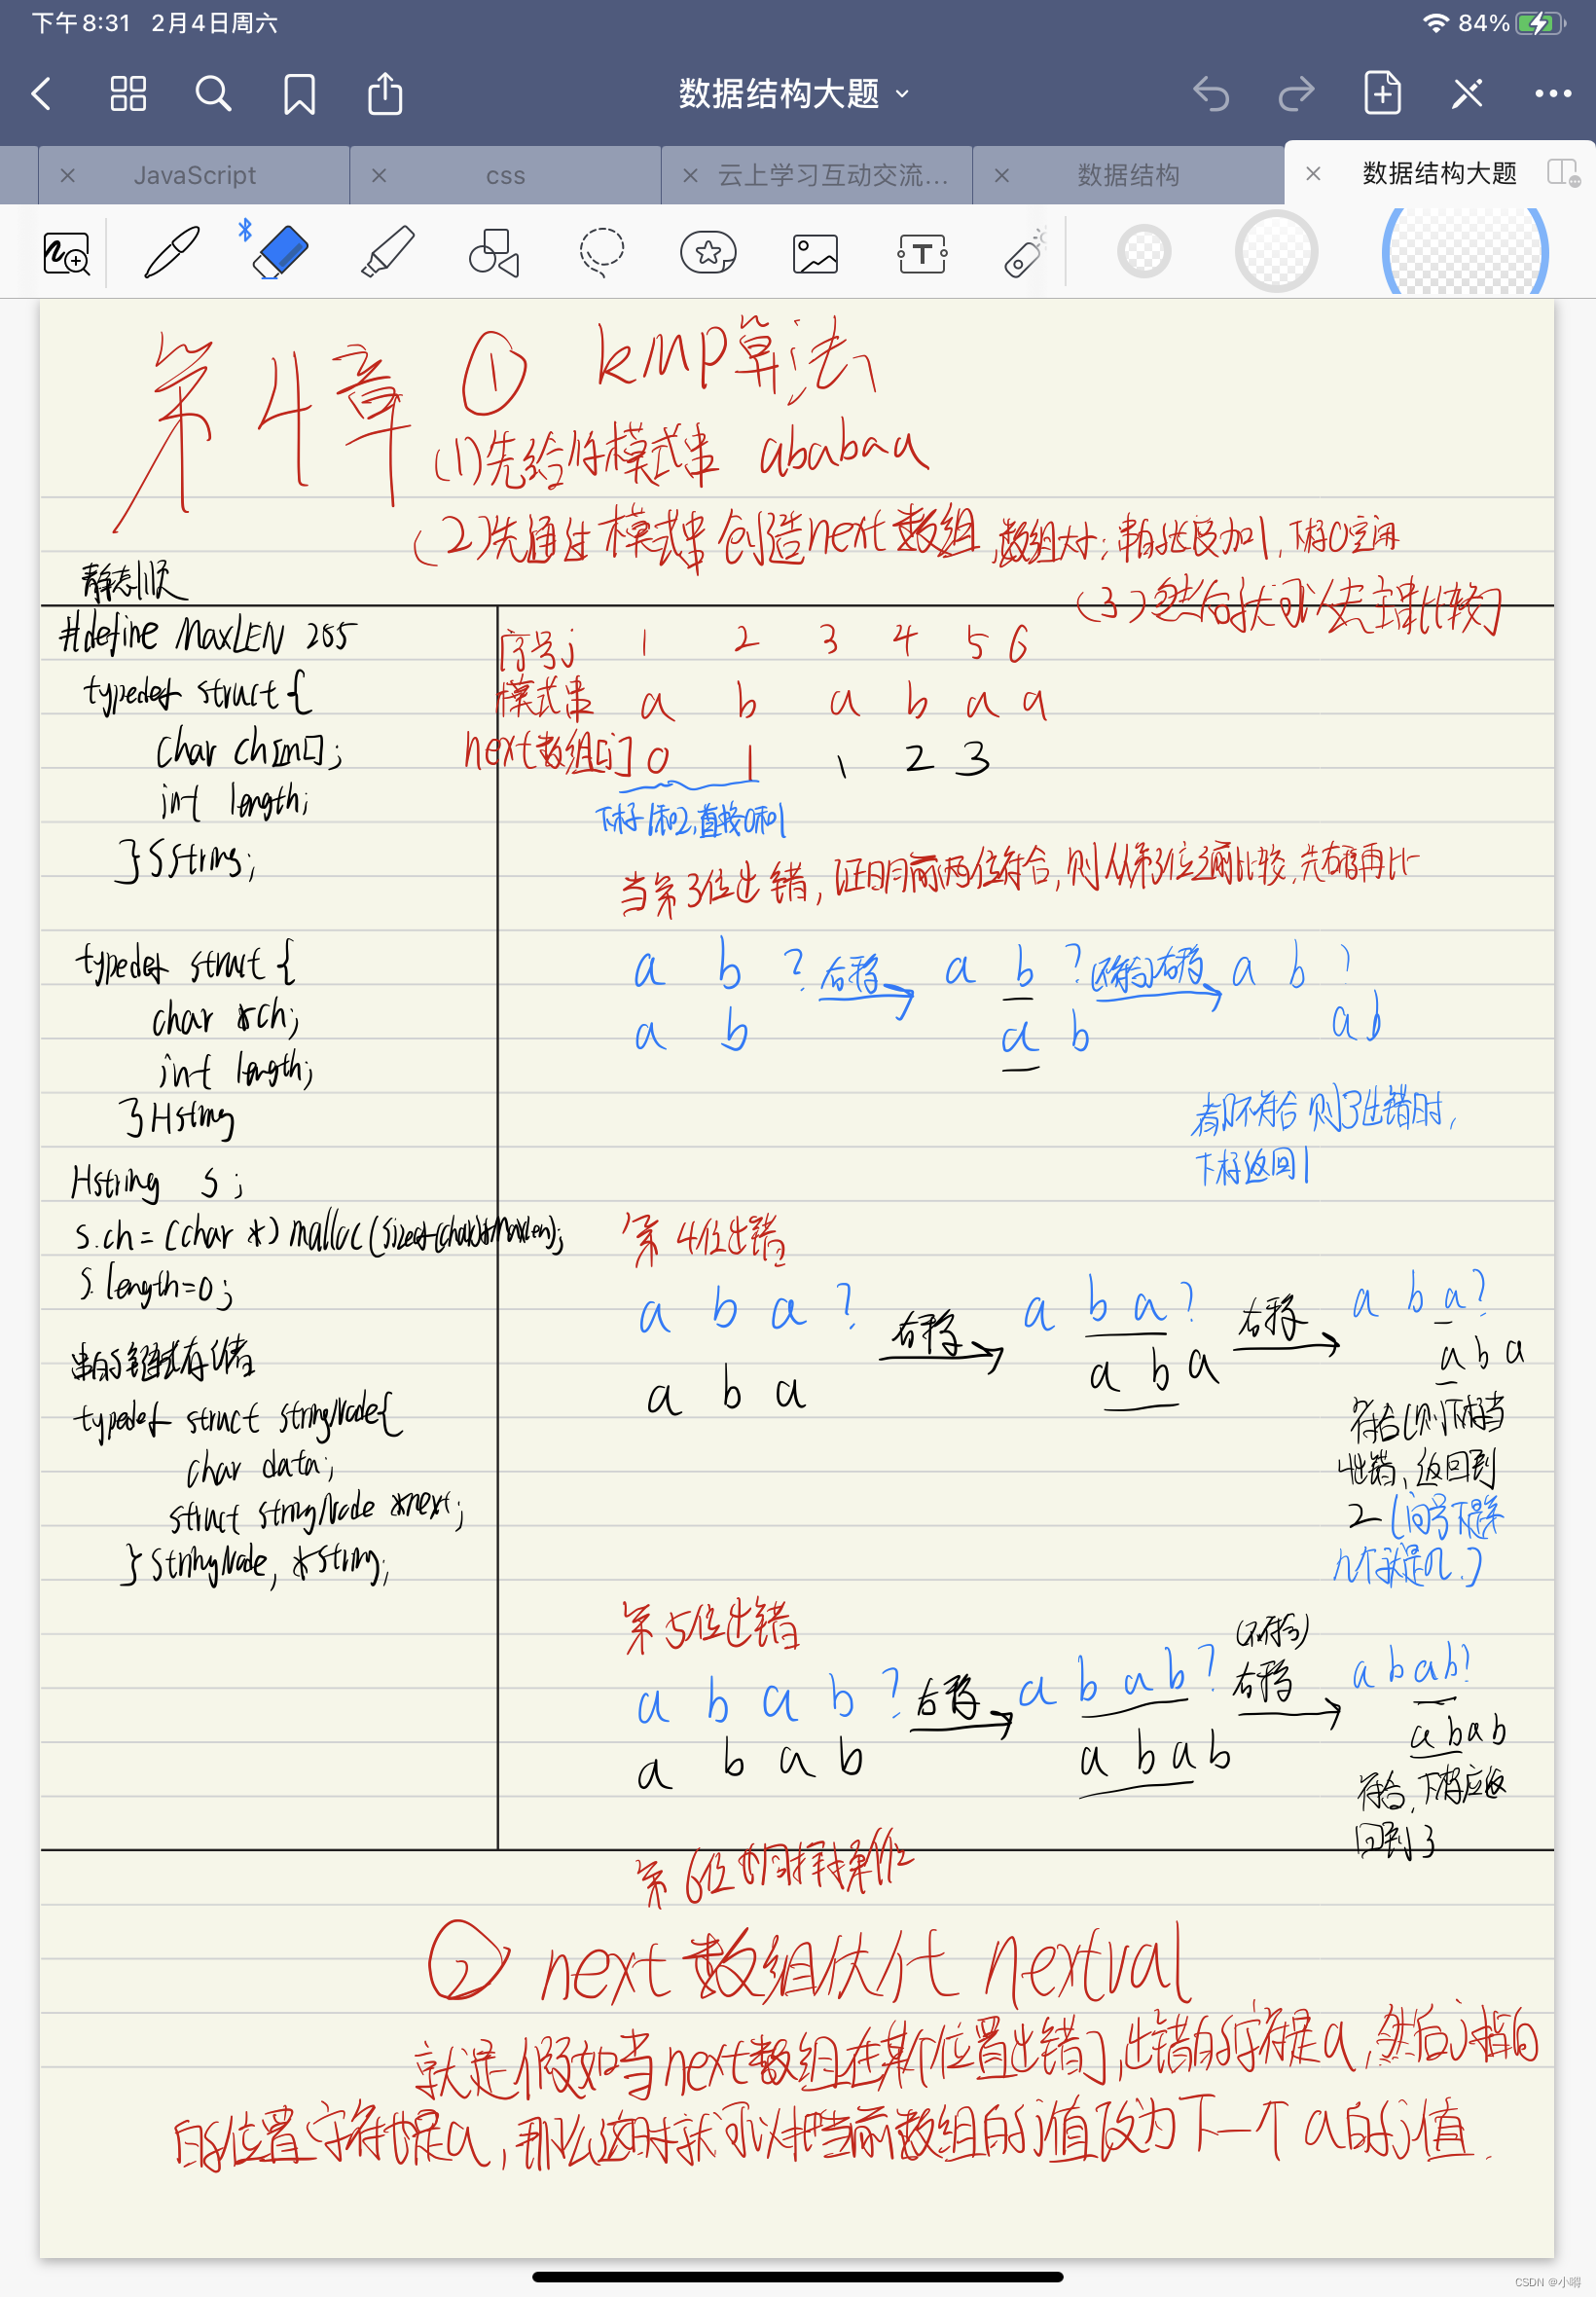 下午8:31 2月4日周六
84%
数据结构大题
JavaScript
css
云上学习互动交流...
数据结构
数据结构大题
第4章 ① kmp算法
(1)先给你模式串 ababaa
(2)先通过模式串创造next数组,数组大小:串的长度加1,下标0空闲
(3)然后就可以去主串比较了
静态顺
#define MaxLEN 265
typedef struct {
char ch[m];
int length;
}SString;
typedef struct {
char *ch;
int length;
}Hstring
Hstring s;
s.ch=(char *)malloc(sizeof(char)*MaxLen);
s.length=0;
串的链式存储
typedef struct stringNode{
char data;
struct stringNode *next;
}StringNode,*string;
序号j 1 2 3 4 5 6
模式串 a b a b a a
next数组[j] 0 1 1 2 3
下标1和2,直接0和1
当第3位出错,证明前两位符合,则从第3位之前比较,先右移再比
a b ? 右移 a b ? (不符合)右移 a b ?
a b a b a b
都不符合则3出错时,
下标返回1
第4位出错
a b a ? 右移 a b a ? 右移 a b a ?
a b a a b a a b a
符合(则下标当
4出错,返回到
2(问号下是第
n个就是n.)
第5位出错
(不符合)
a b a b ? 右移 a b a b ? 右移 a b a b ?
a b a b a b a b a b a b
符合,下标应返
回到3
第6位也同样操作
② next数组优化 nextval
就是假如当next数组在某个位置出错了,出错的字符是a,然后j指向
的位置字符也是a,那么这时就可以把当前数组的j值改为下一个a的j值.
CSDN @小嘚